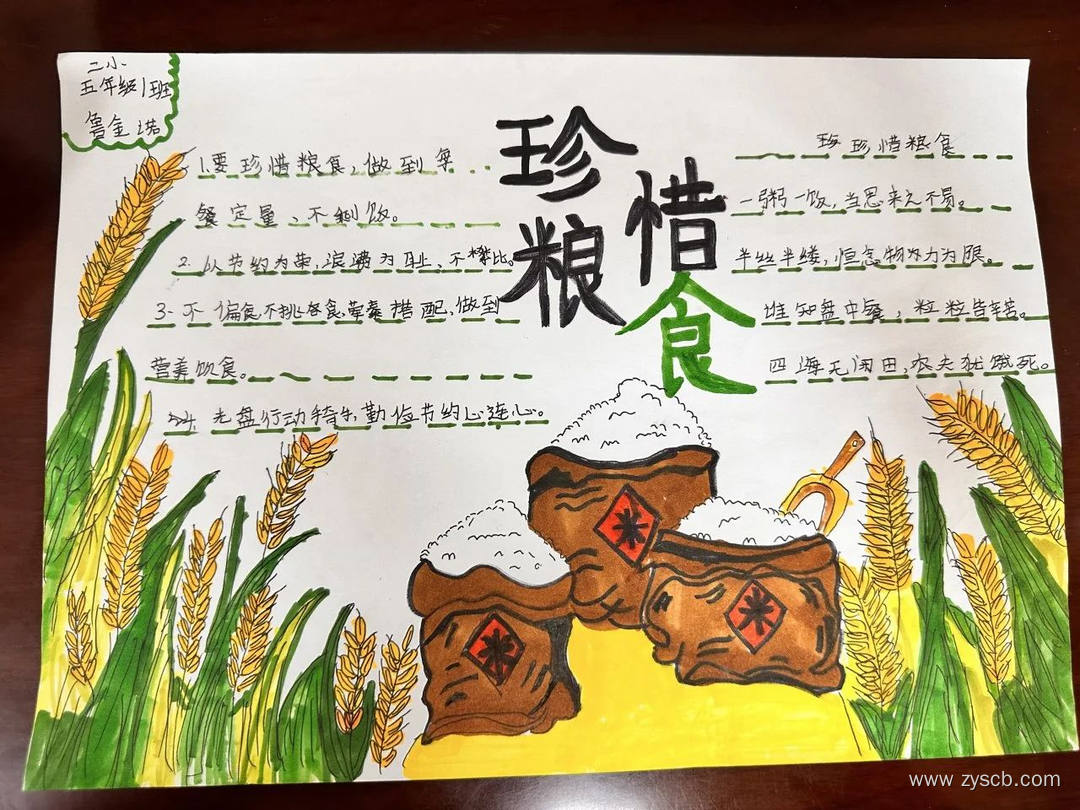 二小
五年级1班
鲁金诺
珍惜
粮食
1.要珍惜粮食,做到每
餐定量、不剩饭。
2.以节约为荣,浪费为耻、不攀比。
3.不偏食不挑食,荤素搭配,做到
营养饮食。
4.光盘行动手牵手,勤俭节约心连心。
珍惜粮食
一粥一饭,当思来之不易。
半丝半缕,恒念物力为限。
谁知盘中餐,粒粒皆辛苦。
四海无闲田,农夫犹饿死。
米
米
米
www.zyscb.com